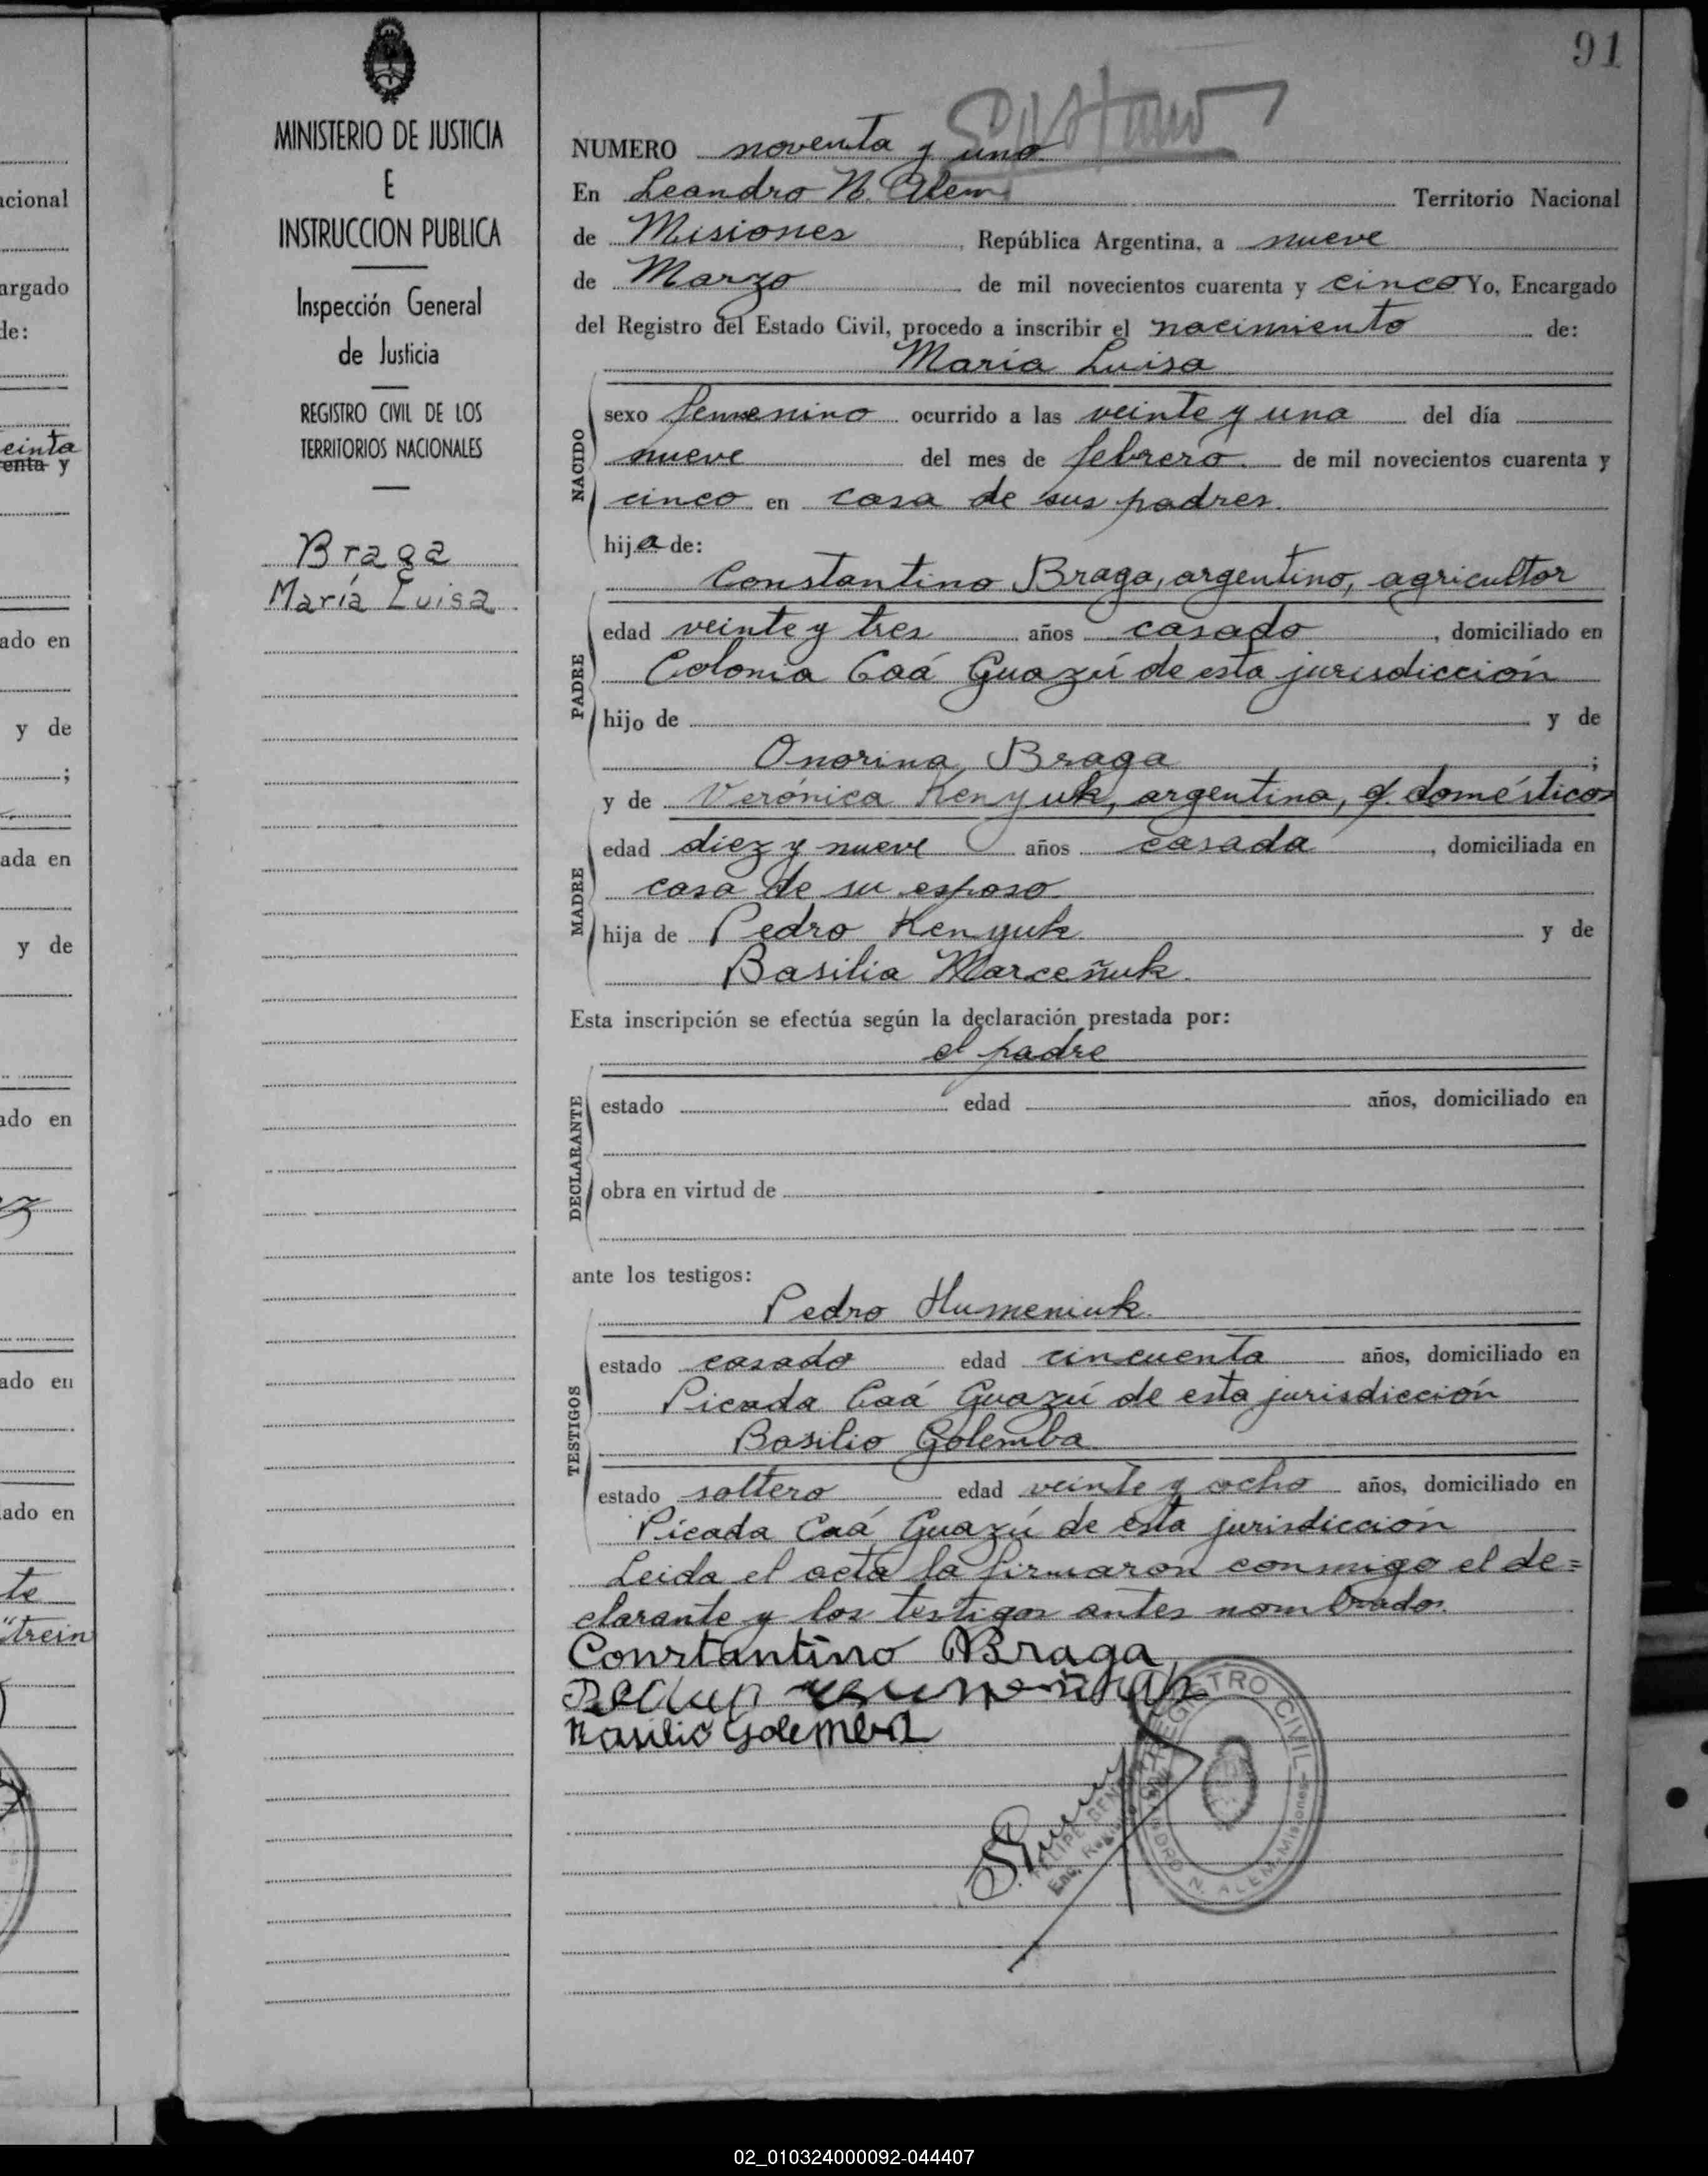 91
MINISTERIO DE JUSTICIA
E
INSTRUCCION PUBLICA
Inspección General
de Justicia
REGISTRO CIVIL DE LOS
TERRITORIOS NACIONALES
Braga
María Luisa
NUMERO noventa y uno
En Leandro N. Alem Territorio Nacional
de Misiones, República Argentina, a nueve
de Marzo de mil novecientos cuarenta y cinco Yo, Encargado
del Registro del Estado Civil, procedo a inscribir el nacimiento de:
María Luisa
NACIDO
sexo femenino ocurrido a las veinte y una del día
nueve del mes de febrero de mil novecientos cuarenta y
cinco en casa de sus padres.
hija de:
Constantino Braga, argentino, agricultor
PADRE
edad veinte y tres años casado, domiciliado en
Colonia Caá Guazú de esta jurisdicción
hijo de y de
Onorina Braga;
y de Verónica Kenyuk, argentina, q. domésticos
MADRE
edad diez y nueve años casada, domiciliada en
casa de su esposo
hija de Pedro Kenyuk y de
Basilia Marceñuk.
Esta inscripción se efectúa según la declaración prestada por:
el padre
DECLARANTE
estado edad años, domiciliado en
obra en virtud de
ante los testigos:
Pedro Humeniuk.
TESTIGOS
estado casado edad cincuenta años, domiciliado en
Picada Caá Guazú de esta jurisdicción
Basilio Golemba
estado soltero edad veinte y ocho años, domiciliado en
Picada Caá Guazú de esta jurisdicción
Leida el acta la firmaron conmigo el de=
clarante y los testigos antes nombrados.
Constantino Braga
Basilio Golemba
REGISTRO CIVIL
N. ALEM - Misiones
FELIPE
Enc. Registro Civil
acional
argado
de:
einta
enta y
ado en
y de
;
ada en
y de
ado en
ado en
ado en
te
"trein
02_010324000092-044407